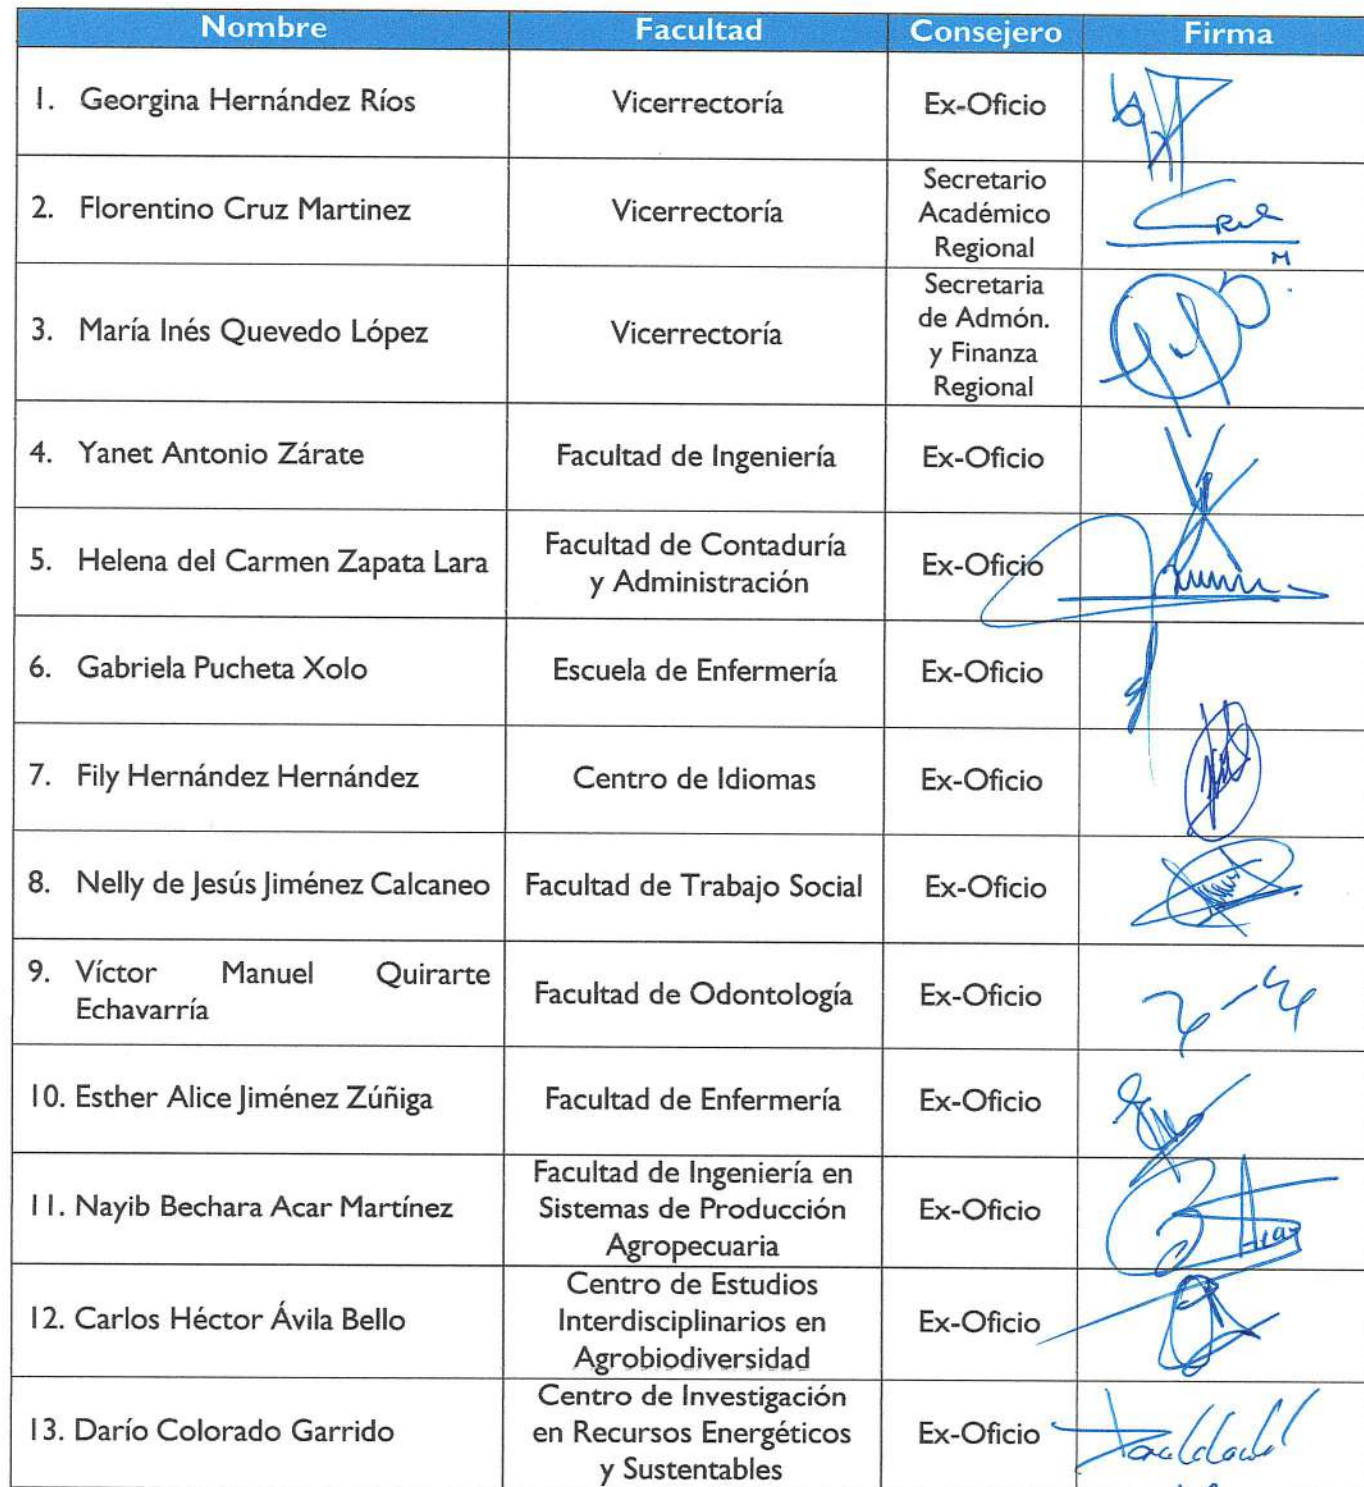 Nombre Facultad Consejero Firma
1. Georgina Hernández Ríos Vicerrectoría Ex-Oficio
2. Florentino Cruz Martinez Vicerrectoría Secretario
Académico
Regional
3. María Inés Quevedo López Vicerrectoría Secretaria
de Admón.
y Finanza
Regional
4. Yanet Antonio Zárate Facultad de Ingeniería Ex-Oficio
5. Helena del Carmen Zapata Lara Facultad de Contaduría
y Administración Ex-Oficio
6. Gabriela Pucheta Xolo Escuela de Enfermería Ex-Oficio
7. Fily Hernández Hernández Centro de Idiomas Ex-Oficio
8. Nelly de Jesús Jiménez Calcaneo Facultad de Trabajo Social Ex-Oficio
9. Víctor Manuel Quirarte
Echavarría Facultad de Odontología Ex-Oficio
10. Esther Alice Jiménez Zúñiga Facultad de Enfermería Ex-Oficio
11. Nayib Bechara Acar Martínez Facultad de Ingeniería en
Sistemas de Producción
Agropecuaria Ex-Oficio
12. Carlos Héctor Ávila Bello Centro de Estudios
Interdisciplinarios en
Agrobiodiversidad Ex-Oficio
13. Darío Colorado Garrido Centro de Investigación
en Recursos Energéticos
y Sustentables Ex-Oficio